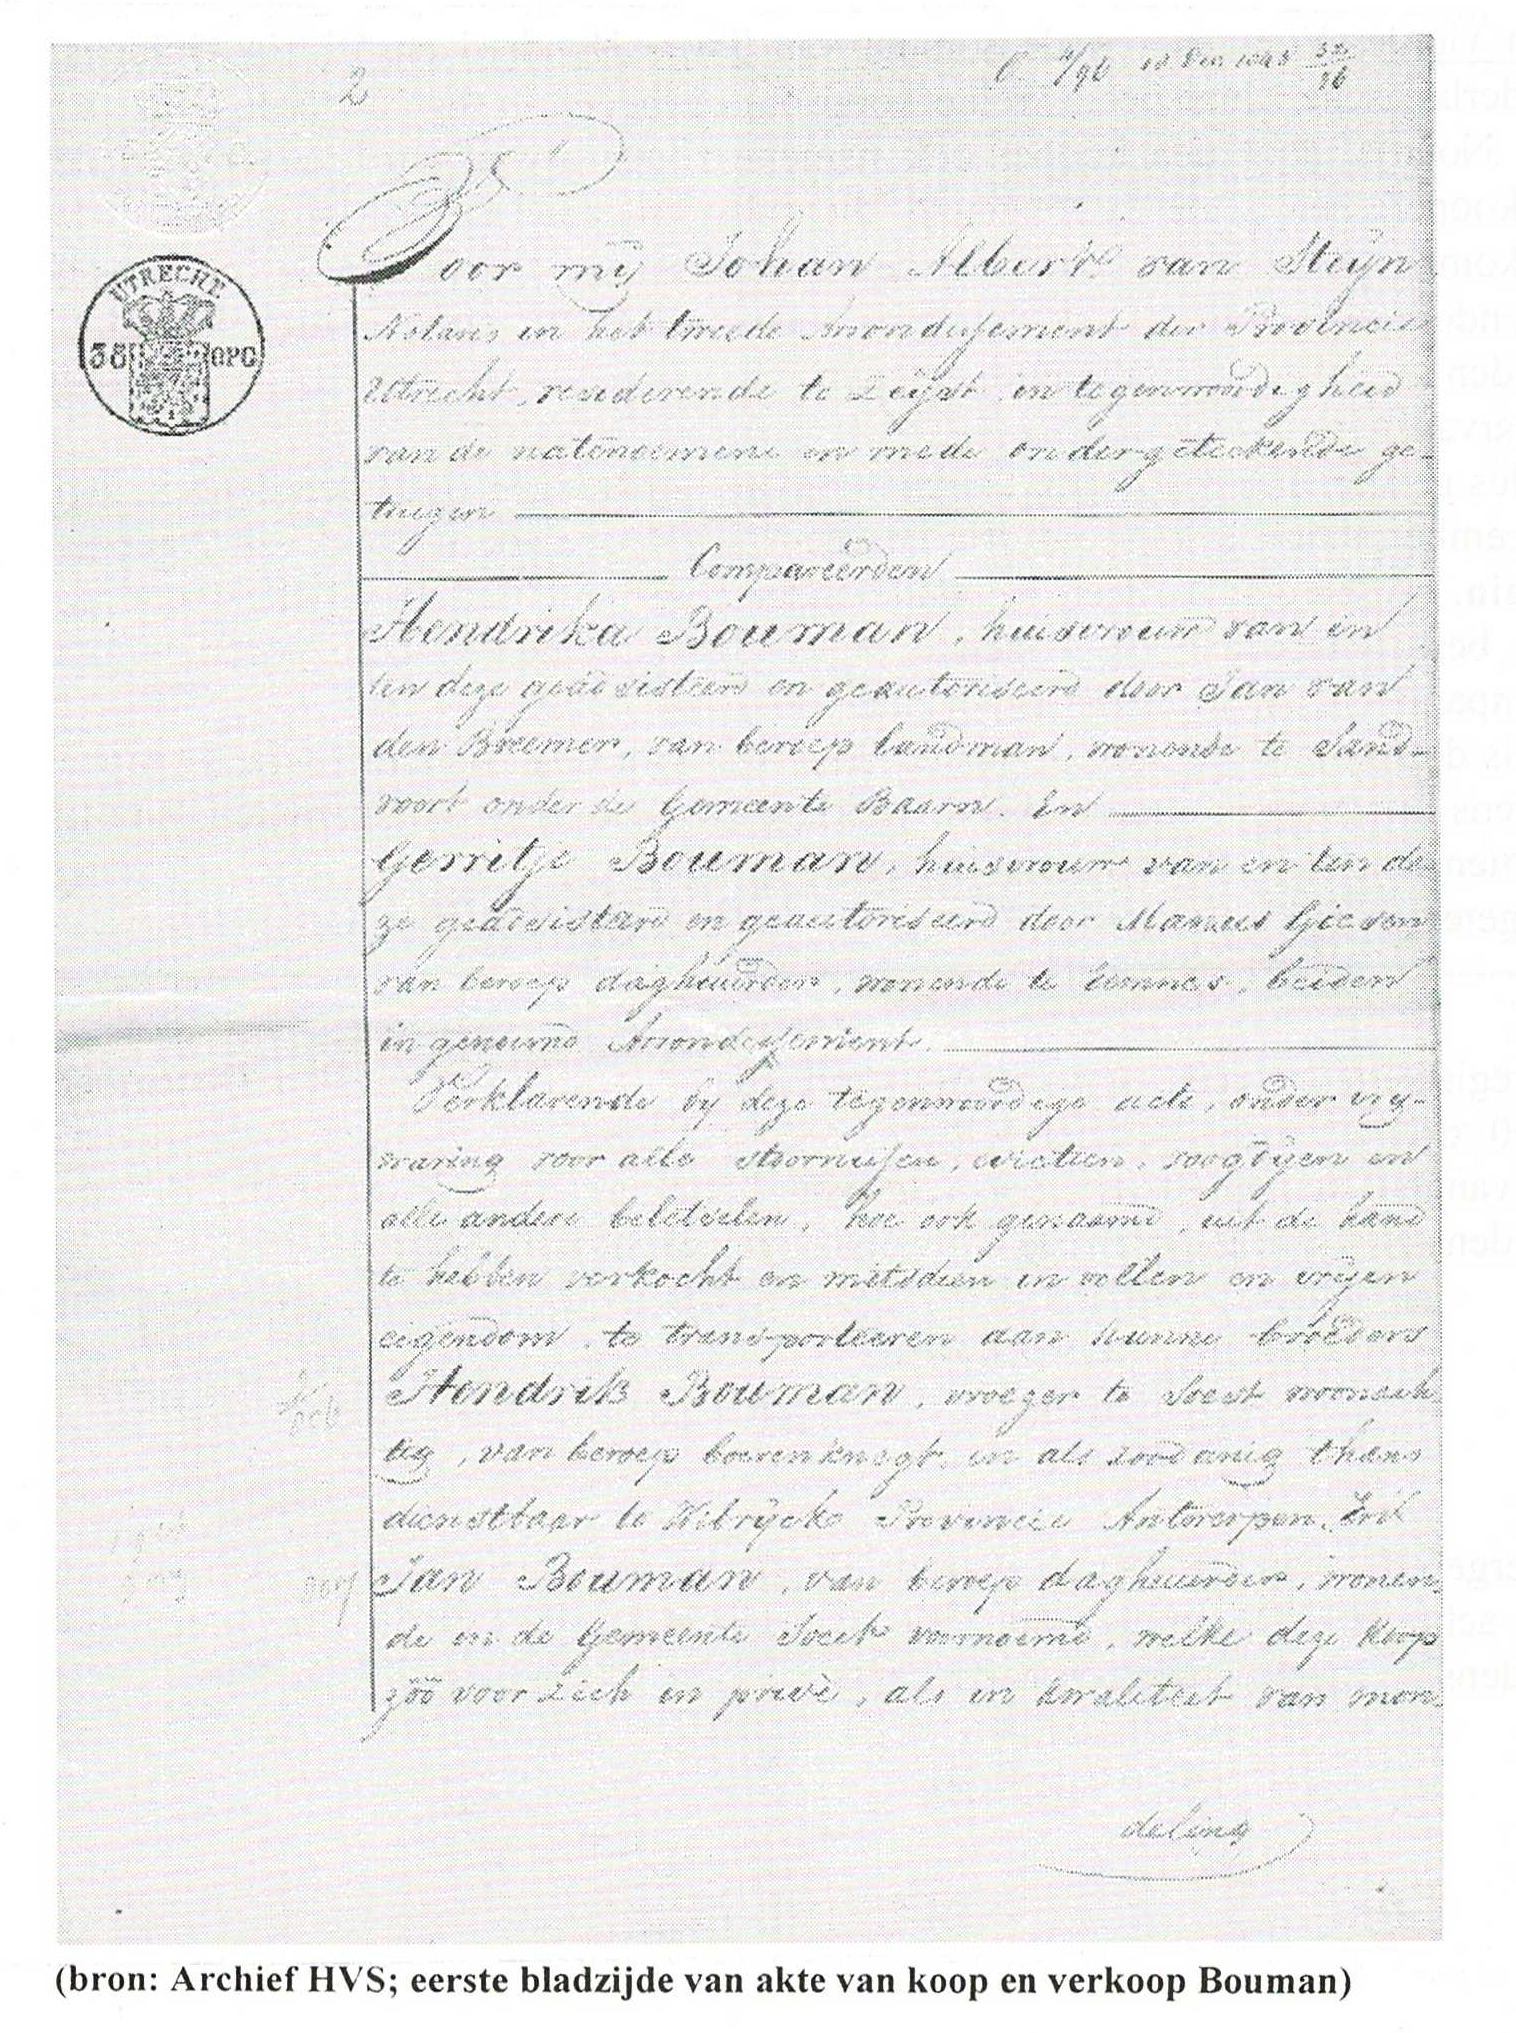 2
UTRECHT
38 OPC
Voor mij Johan Albert van Steijn
Notaris in het tweede Arrondissement der Provincie
Utrecht, resideerende te Zeijst in tegenwoordigheid
van de natenoemene en mede ondergeteekende ge-
tuigen
Compareerden
Hendrika Bouman, huisvrouw van en
ten deze geadsisteerd en geautoriseerd door Jan van
den Breemer, van beroep landman, wonende te Sand-
voort onder de Gemeente Baarn. En
Gerritje Bouman, huisvrouw van en ten de
ze geadsisteerd en geautoriseerd door Mannes
van beroep daghuurder, wonende te Eemnes, beiden
in genoemd Arrondissement.
Verklarende bij deze tegenwoordige acte, onder vrij-
waring voor alle stoornissen, evictien, voogdijen en
alle andere beletselen, hoe ook genaamd, uit de hand
te hebben verkocht en mitsdien in vollen en vrijen
eigendom, te transporteeren aan hunne broeders
Hendrik Bouman, vroeger te Soest woonach-
tig, van beroep boerenknegt, en als zoodanig thans
dienstbaar te Wilrijcke Provincie Antwerpen. En
Jan Bouman, van beroep daghuurder, wonen-
de in de Gemeente Soest voornoemd, welke deze koop
zoo voor zich en privé, als in kwaliteit van mon-
deling
(bron: Archief HVS; eerste bladzijde van akte van koop en verkoop Bouman)